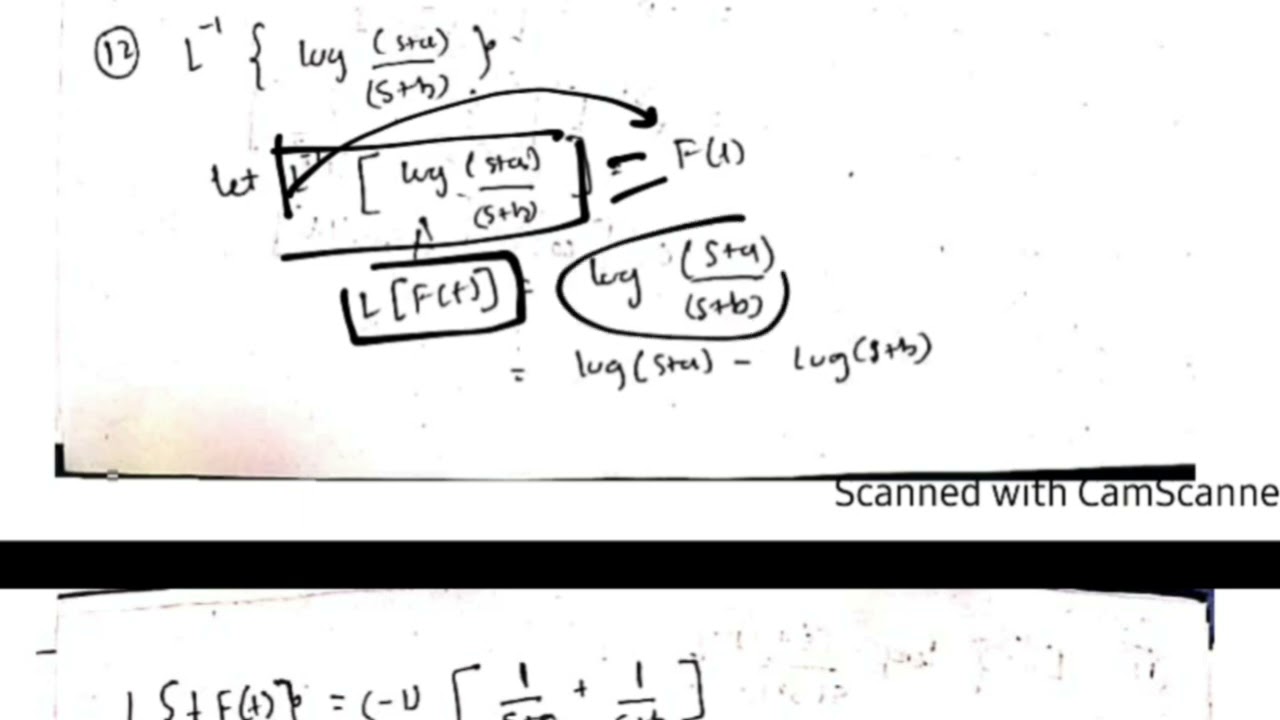 12 L⁻¹ { log (s+a)/(s+b) }
let L⁻¹ [ log (s+a)/(s+b) ] = F(t)
L[F(t)] = log (s+a)/(s+b)
= log(s+a) - log(s+b)
Scanned with CamScanne
L{t F(t)} = (-1) [ 1/s+a + 1/s+b ]